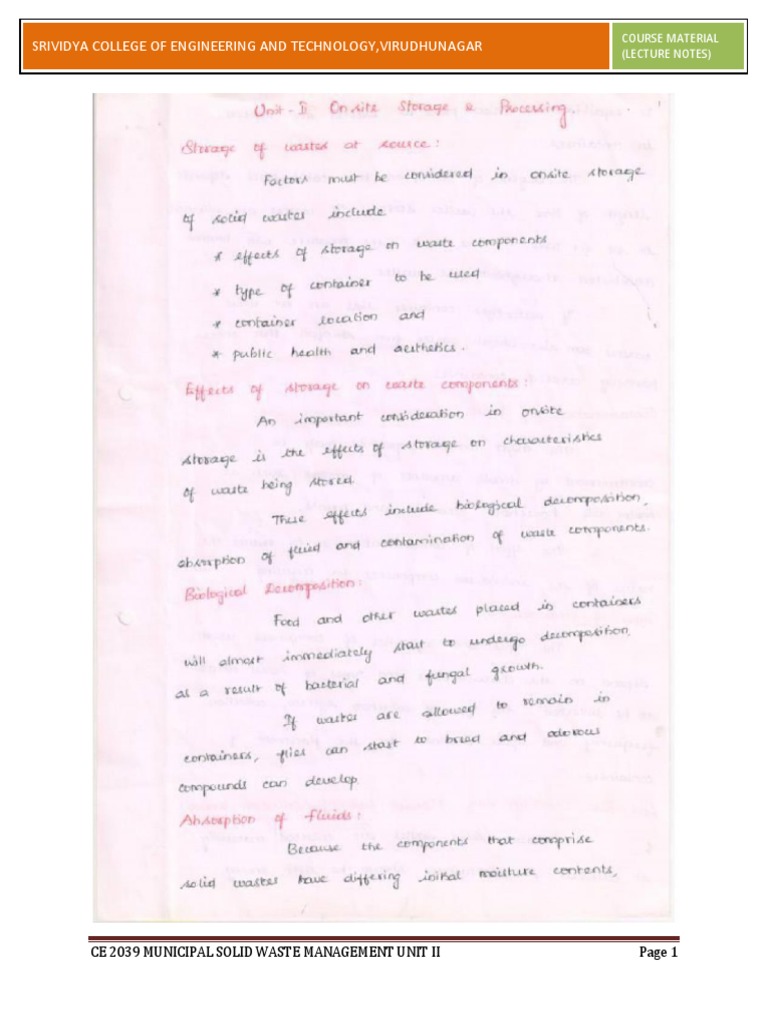 SRIVIDYA COLLEGE OF ENGINEERING AND TECHNOLOGY,VIRUDHUNAGAR
COURSE MATERIAL
(LECTURE NOTES)
Unit - II Onsite Storage & Processing.
Storage of wastes at source :
Factors must be considered in onsite storage
of solid wastes include
* effects of storage on waste components
* type of container to be used
* container location and
* public health and aesthetics.
Effects of storage on waste components :
An important consideration in onsite
storage is the effects of storage on characteristics
of waste being stored.
These effects include biological decomposition,
absorption of fluid and contamination of waste components.
Biological Decomposition :
Food and other wastes placed in containers
will almost immediately start to undergo decomposition,
as a result of bacterial and fungal growth.
If wastes are allowed to remain in
containers, flies can start to breed and odorous
compounds can develop.
Absorption of fluids :
Because the components that comprise
solid wastes have differing initial moisture contents,
CE 2039 MUNICIPAL SOLID WASTE MANAGEMENT UNIT II
Page 1